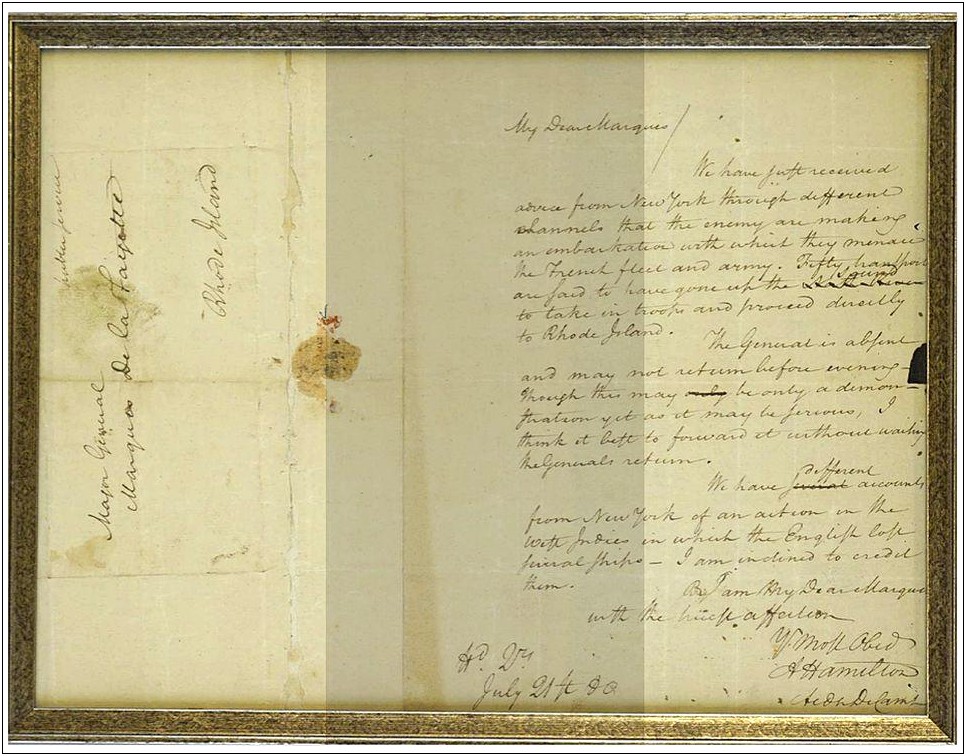 Major General
Marquis De la Fayette
Rhode Island
My Dear Marquis
We have just received
advice from New York through different
channels that the enemy are making
an embarkation with which they menace
the French fleet and army. Fifty transports
are said to have gone up the Sound
to take in troops and proceed directly
to Rhode Island.
The General is absent
and may not return before evening
though this may only be only a demon-
stration yet as it may be serious, I
think it best to forward it without waiting
the Generals return.
We have several different accounts
from New York of an action in the
West Indies in which the English lost
several ships – I am inclined to credit
them.
I am My Dear Marquis
with the truest affection
Yr. Most Obed
A Hamilton
Aide De Camp
Hd. Qrs
July 21st 80